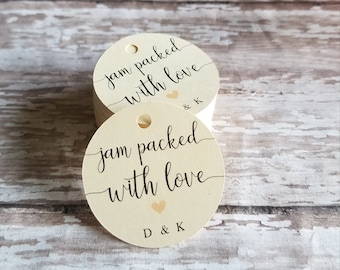 jam packed
with love
& K
jam packed
with love
D & K